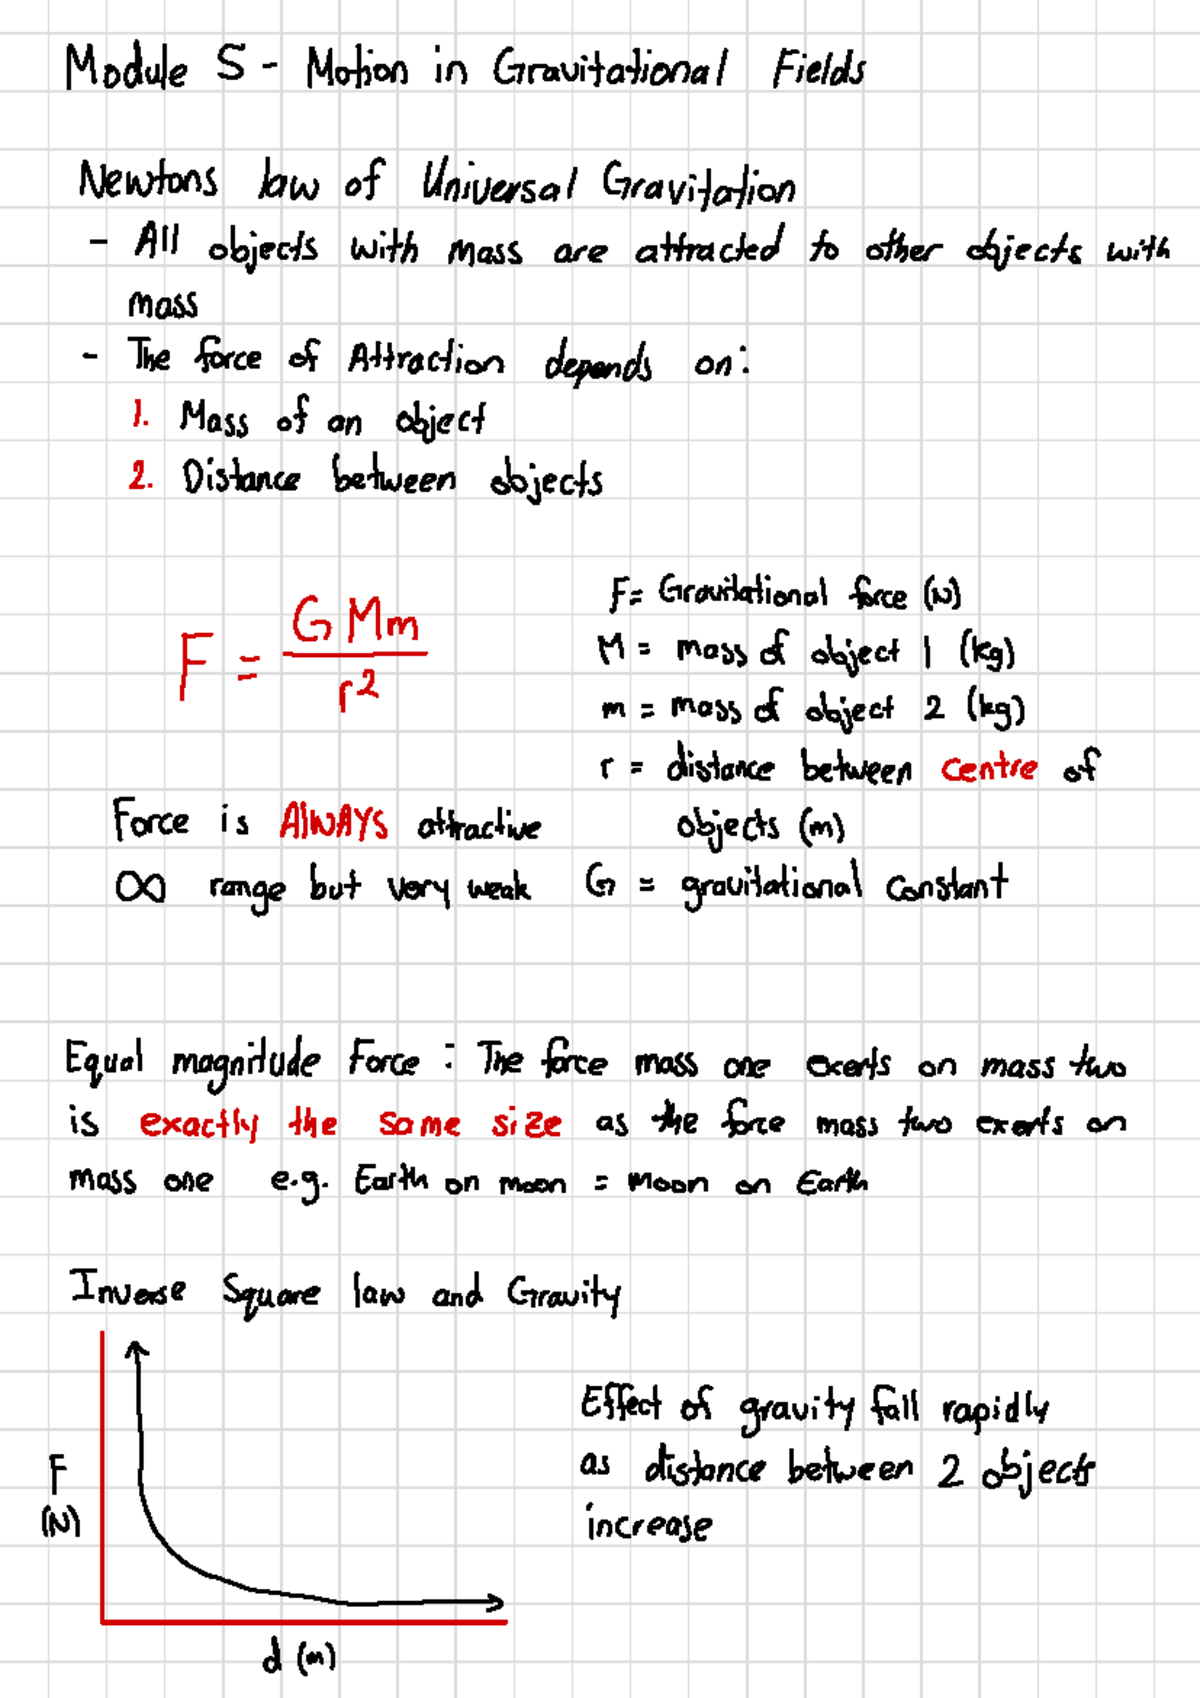 Module 5 - Motion in Gravitational Fields
Newtons law of Universal Gravitation
- All objects with mass are attracted to other objects with
mass
- The force of Attraction depends on:
1. Mass of an object
2. Distance between objects
F = G Mm / r²
F = Gravitational force (N)
M = mass of object 1 (kg)
m = mass of object 2 (kg)
r = distance between centre of
objects (m)
G = gravitational constant
Force is AlWAYS attractive
∞ range but very weak
Equal magnitude Force : The force mass one exerts on mass two
is exactly the same size as the force mass two exerts on
mass one e.g. Earth on moon = Moon on Earth
Inverse Square law and Gravity
F
(N)
d (m)
Effect of gravity fall rapidly
as distance between 2 objects
increase